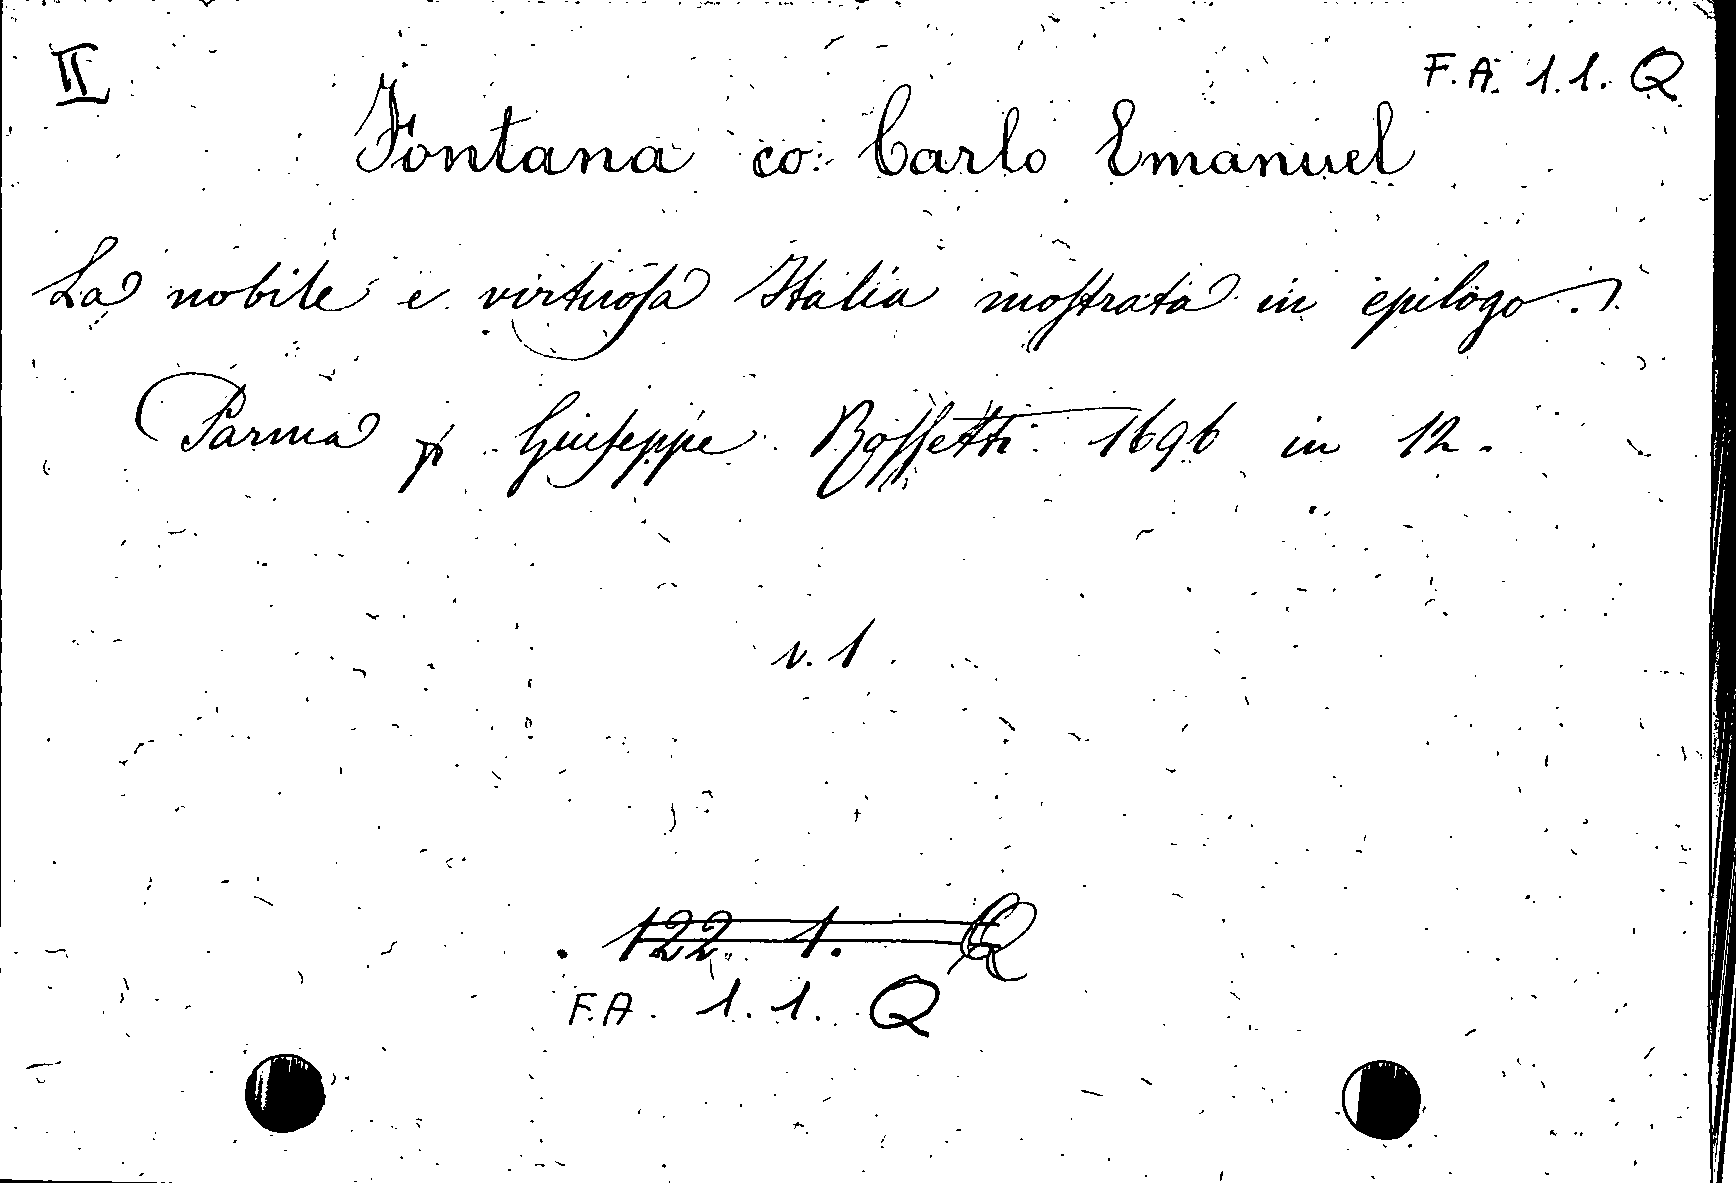 II
F. A. 1. 1. Q
Fontana co: Carlo Emanuel
La nobile e virtuosa Italia mostrata in epilogo.
Parma p Giuseppe Rossetti 1696 in 12.
v. 1
122. 1. Q
F.A. 1. 1. Q